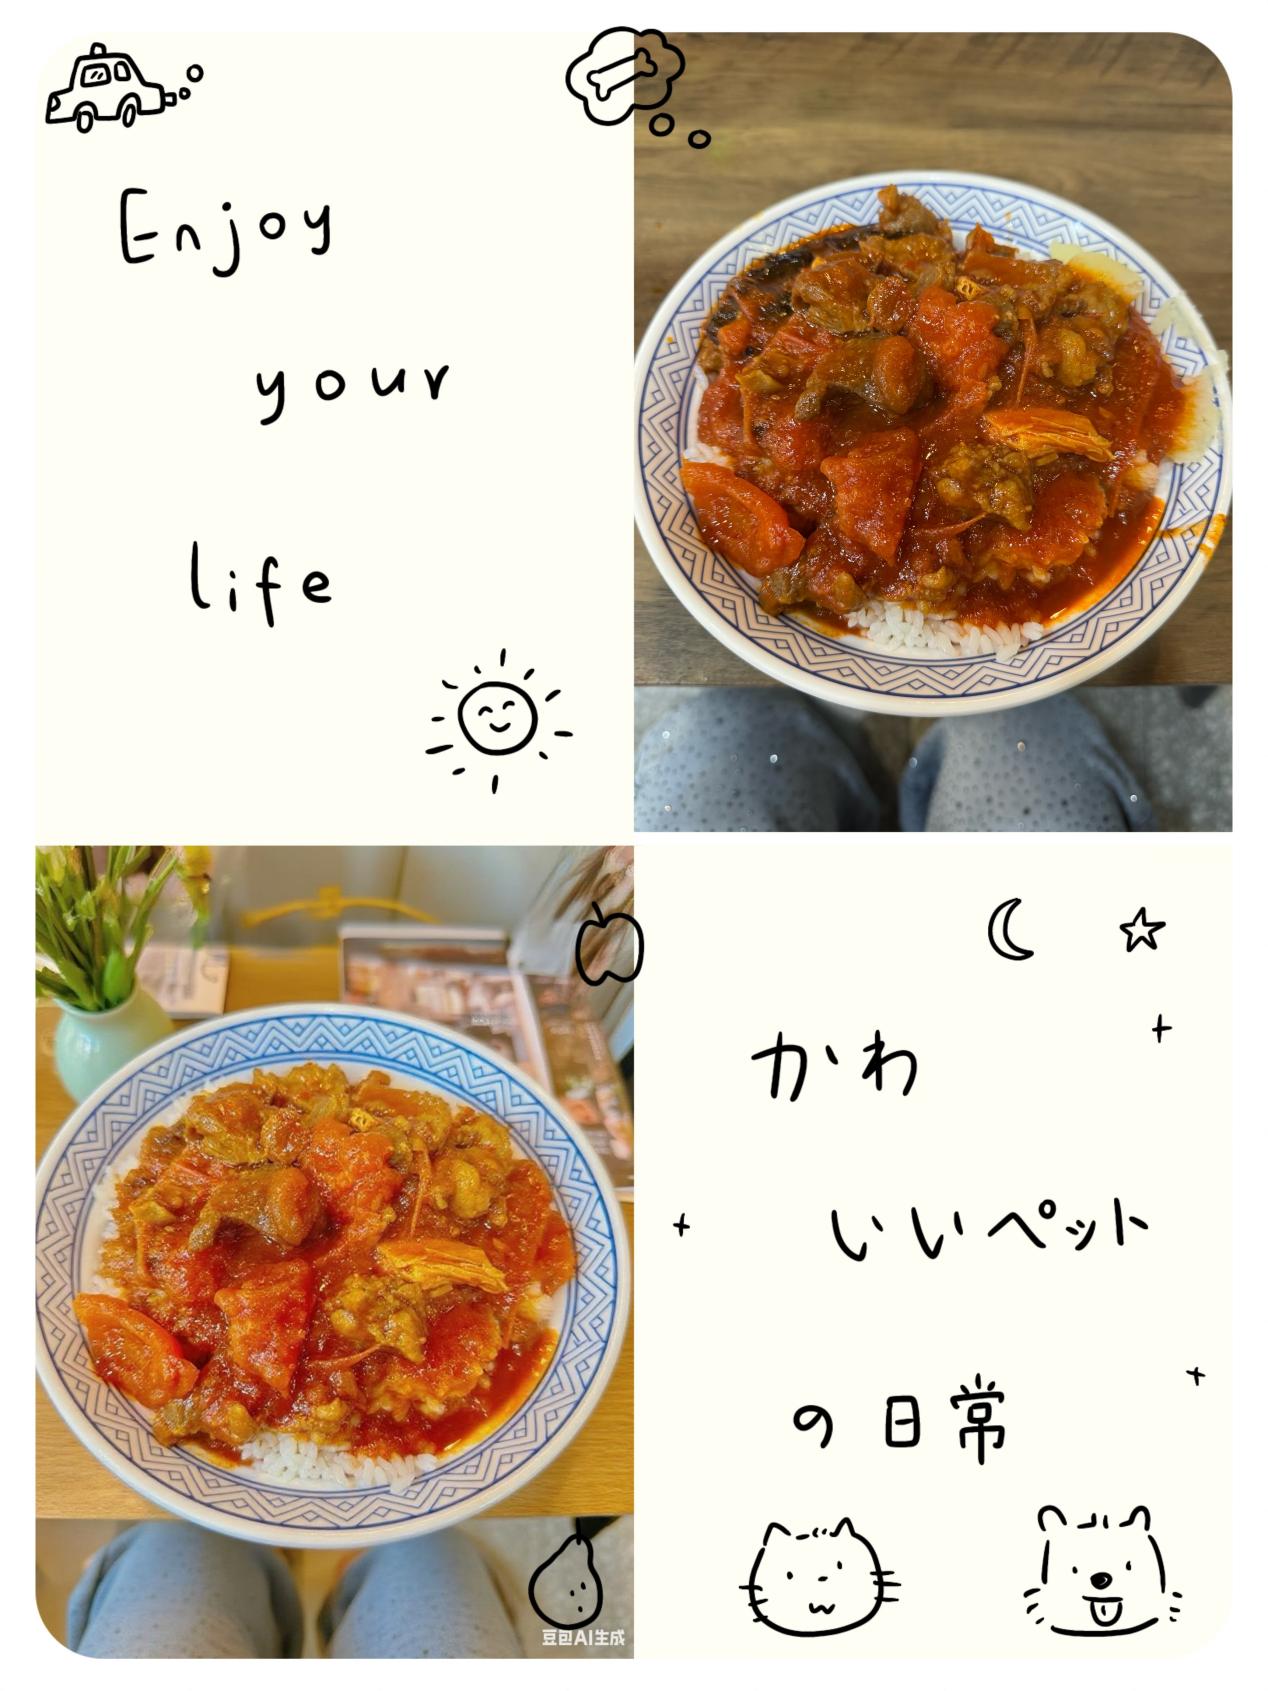 Enjoy
your
life
かわ
いいペット
の日常
豆包AI生成